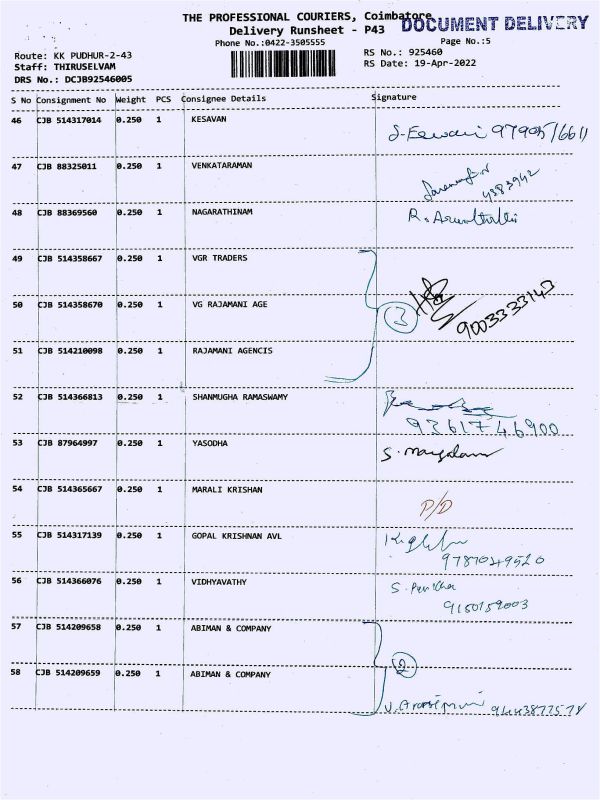 THE PROFESSIONAL COURIERS, Coimbatore
DOCUMENT DELIVERY
Delivery Runsheet - P43
Phone No.:0422-3505555
Page No.:5
Route: KK PUDHUR-2-43
RS No.: 925460
Staff: THIRUSELVAM
RS Date: 19-Apr-2022
DRS No.: DCJB92546005
S No Consignment No Weight PCS Consignee Details Signature
46 CJB 514317014 0.250 1 KESAVAN
47 CJB 88325011 0.250 1 VENKATARAMAN
4383942
48 CJB 88369560 0.250 1 NAGARATHINAM R.
49 CJB 514358667 0.250 1 VGR TRADERS
50 CJB 514358670 0.250 1 VG RAJAMANI AGE 3 9003333143
51 CJB 514210098 0.250 1 RAJAMANI AGENCIS
52 CJB 514366813 0.250 1 SHANMUGHA RAMASWAMY
9361746900
53 CJB 87964997 0.250 1 YASODHA S.
54 CJB 514365667 0.250 1 MARALI KRISHAN
P/D
55 CJB 514317139 0.250 1 GOPAL KRISHNAN AVL
9787049520
56 CJB 514366076 0.250 1 VIDHYAVATHY S.
9150159003
57 CJB 514209658 0.250 1 ABIMAN & COMPANY
2
58 CJB 514209659 0.250 1 ABIMAN & COMPANY
V.